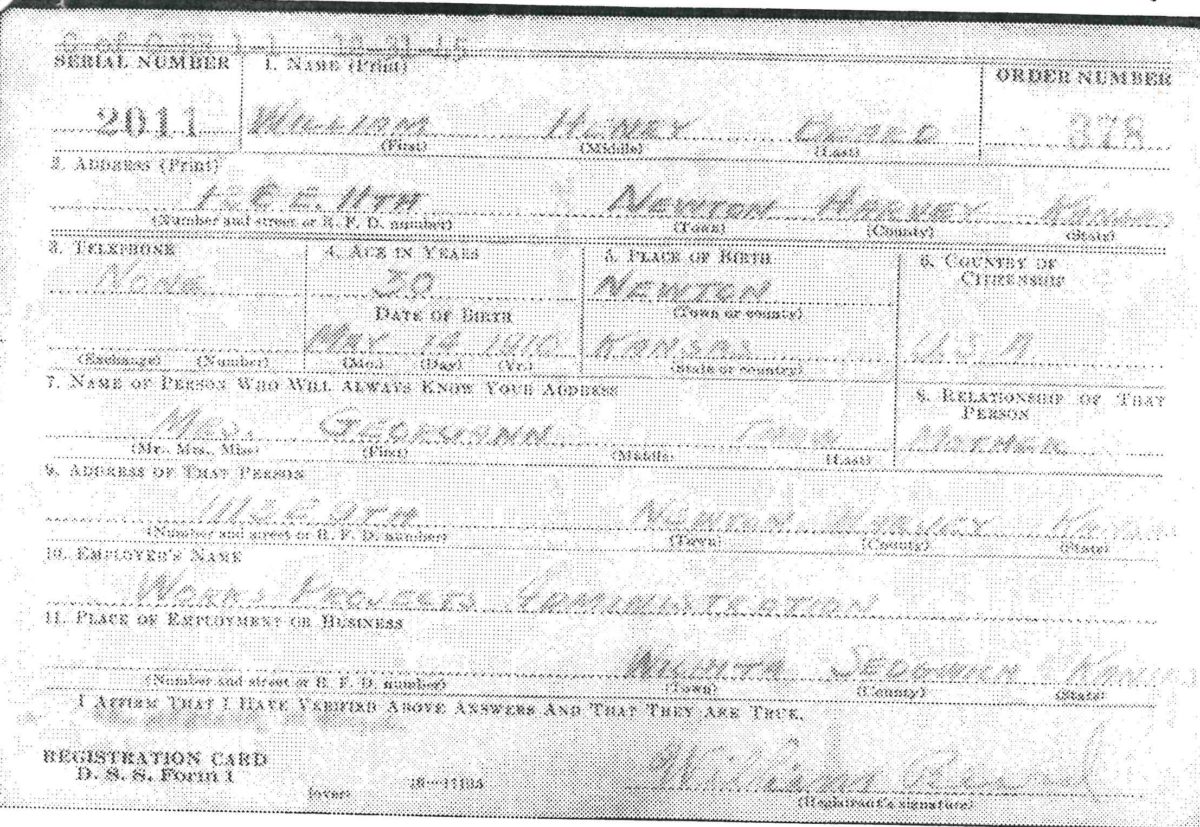 SERIAL NUMBER 1. NAME (Print) ORDER NUMBER
2011 WILLIAM HENRY 378
(First) (Middle) (Last)
2. ADDRESS (Print)
E. 11TH NEWTON HARVEY KANSAS
(Number and street or R. F. D. number) (Town) (County) (State)
3. TELEPHONE 4. AGE IN YEARS 5. PLACE OF BIRTH 6. COUNTRY OF CITIZENSHIP
NONE 30 NEWTON
DATE OF BIRTH (Town or county)
MAY 14 1910 KANSAS U.S.A
(Exchange) (Number) (Mo.) (Day) (Yr.) (State or country)
7. NAME OF PERSON WHO WILL ALWAYS KNOW YOUR ADDRESS 8. RELATIONSHIP OF THAT PERSON
MRS. GEORGIANN MOTHER
(Mr., Mrs., Miss) (First) (Middle) (Last)
9. ADDRESS OF THAT PERSON
113 E 9TH NEWTON HARVEY KANSAS
(Number and street or R. F. D. number) (Town) (County) (State)
10. EMPLOYER'S NAME
WORKS PROJECTS ADMINISTRATION
11. PLACE OF EMPLOYMENT OR BUSINESS
WICHITA SEDGWICK KANSAS
(Number and street or R. F. D. number) (Town) (County) (State)
I AFFIRM THAT I HAVE VERIFIED ABOVE ANSWERS AND THAT THEY ARE TRUE.
REGISTRATION CARD William
D. S. S. Form 1 (over) (Registrant's signature)